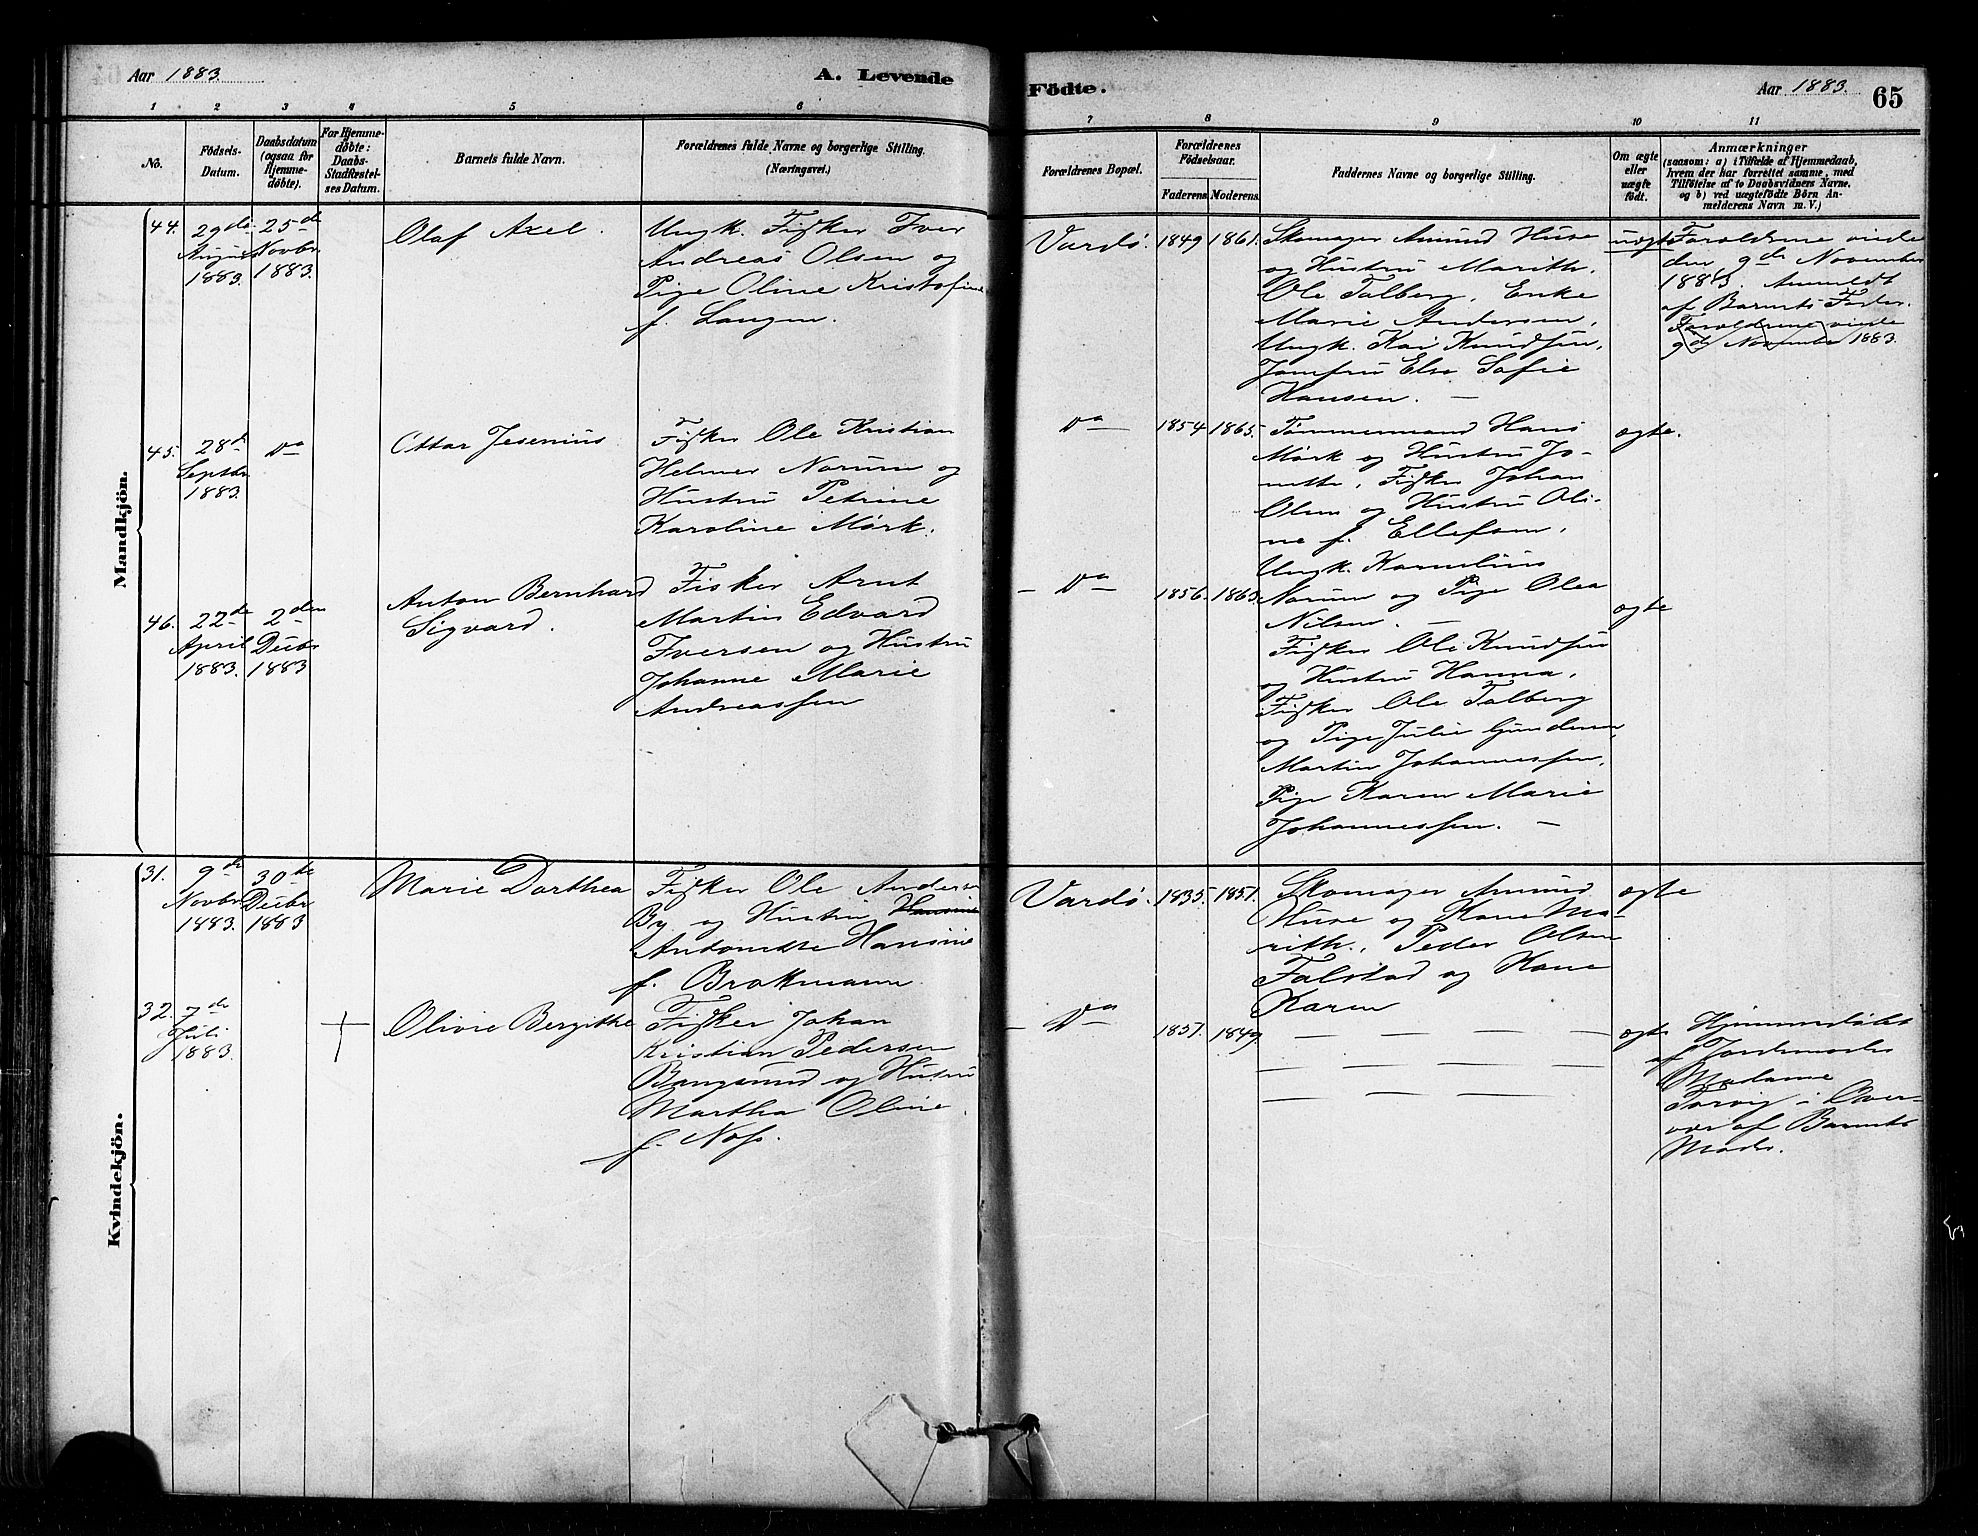 Aar 1883.
A. Levende
Födte.
Aar 1883.
65
1 2 3 4 5 6
7 8 9 10 11
No.
Födsels-Datum.
Daabsdatum (ogsaa för Hjemme-döbte).
For Hjemme-döbte: Daabs-Stadfæstel-ses Datum.
Barnets fulde Navn.
Forældrenes fulde Navne og borgerlige Stilling.
(Næringsvei.)
Forældrenes Bopæl.
Forældrenes Födselsaar.
Faderens Moderens.
Faddernes Navne og borgerlige Stilling.
Om ægte eller uægte födt.
Anmærkninger
(saasom: a) i Tilfælde af Hjemmedaab,
hvem der har forrettet samme, med
Tilföielse af to Daabsvidners Navne,
og b) ved uægtefödte Börn An-
melderens Navn m. V.)
Mandkjön.
44.
29de
August
1883.
25de
Novbr.
1883.
Olaf Axel.
Ungk. Fisker Iver
Andreas Olsen og
Pige Oline Kristofine
f. Langen.
Vardö.
1849
1861.
Skomager Amund Huse
og Hustru Marith.
Ole Talberg, Enke
Marie Andersen,
Ungk. Kai Knudsen,
Jomfru Else Sofie
Hansen. —
uægt
Forældrene viede
den 9de November
1883. Anmeldt
af Barnets Fader.
Forældrene viede
9de November 1883.
45.
28de
Septbr
1883.
Do
Ottar Jesenius
Fisker Ole Kristian
Helmer Norum og
Hustru Petrine
Karoline Mørk.
Do
1854
1865.
Tømmermand Hans
Mørk og Hustru Jo-
nette, Fisker Johan
Olsen og Hustru Oli-
ne f. Ellefsen,
Ungk. Kornelius
Norum og Pige Olea
Nilsen. —
ægte.
46.
22de
April
1883.
2den
Decbr
1883
Anton Bernhard
Sigvard.
Fisker Arnt
Martin Edvard
Iversen og Hustru
Johanne Marie
Andreassen
— Do —
1856.
1863.
Fisker Ole Knudsen
og Hustru Hanna,
Fisker Ole Talberg
og Pige Julie Gundersen,
Martin Johannessen,
Pige Karen Marie
Johannessen. —
ægte
Kvindekjön.
31.
9de
Novbr
1883.
30te
Decbr
1883
Marie Dorthea
Fisker Ole Anders
By og Hustru Hansine
Antonette Hansine
f. Brokmann.
Vardö.
1835.
1851.
Skomager Amund
Huse og Kone Ma-
rith, Peder Olsen
Falstad og Kone
Karen
ægte
32.
7de
Juli
1883.
Olivie Bergithe
Fisker Johan
Kristian Pedersen
Bangsund og Hustru
Martha Oline
f. Noss.
— Do —
1851.
1849.
ægte
Hjemmedøbt
af Jordemoder
Madame
Torvig i Over-
vær af Barnets
Moder.